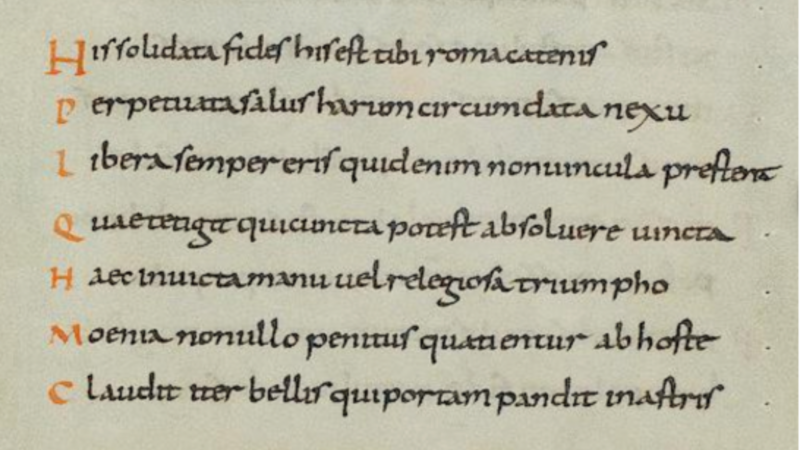 His solidata fides his est tibi roma catenis
Perpetuata salus harum circumdata nexu
Libera semper eris quid enim non uincula prestent
Quae tetigit qui cuncta potest absoluere uincta
Haec inuicta manu uel relegiosa triumpho
Moenia non ullo penitus quatientur ab hoste
Claudit iter bellis qui portam pandit in astris